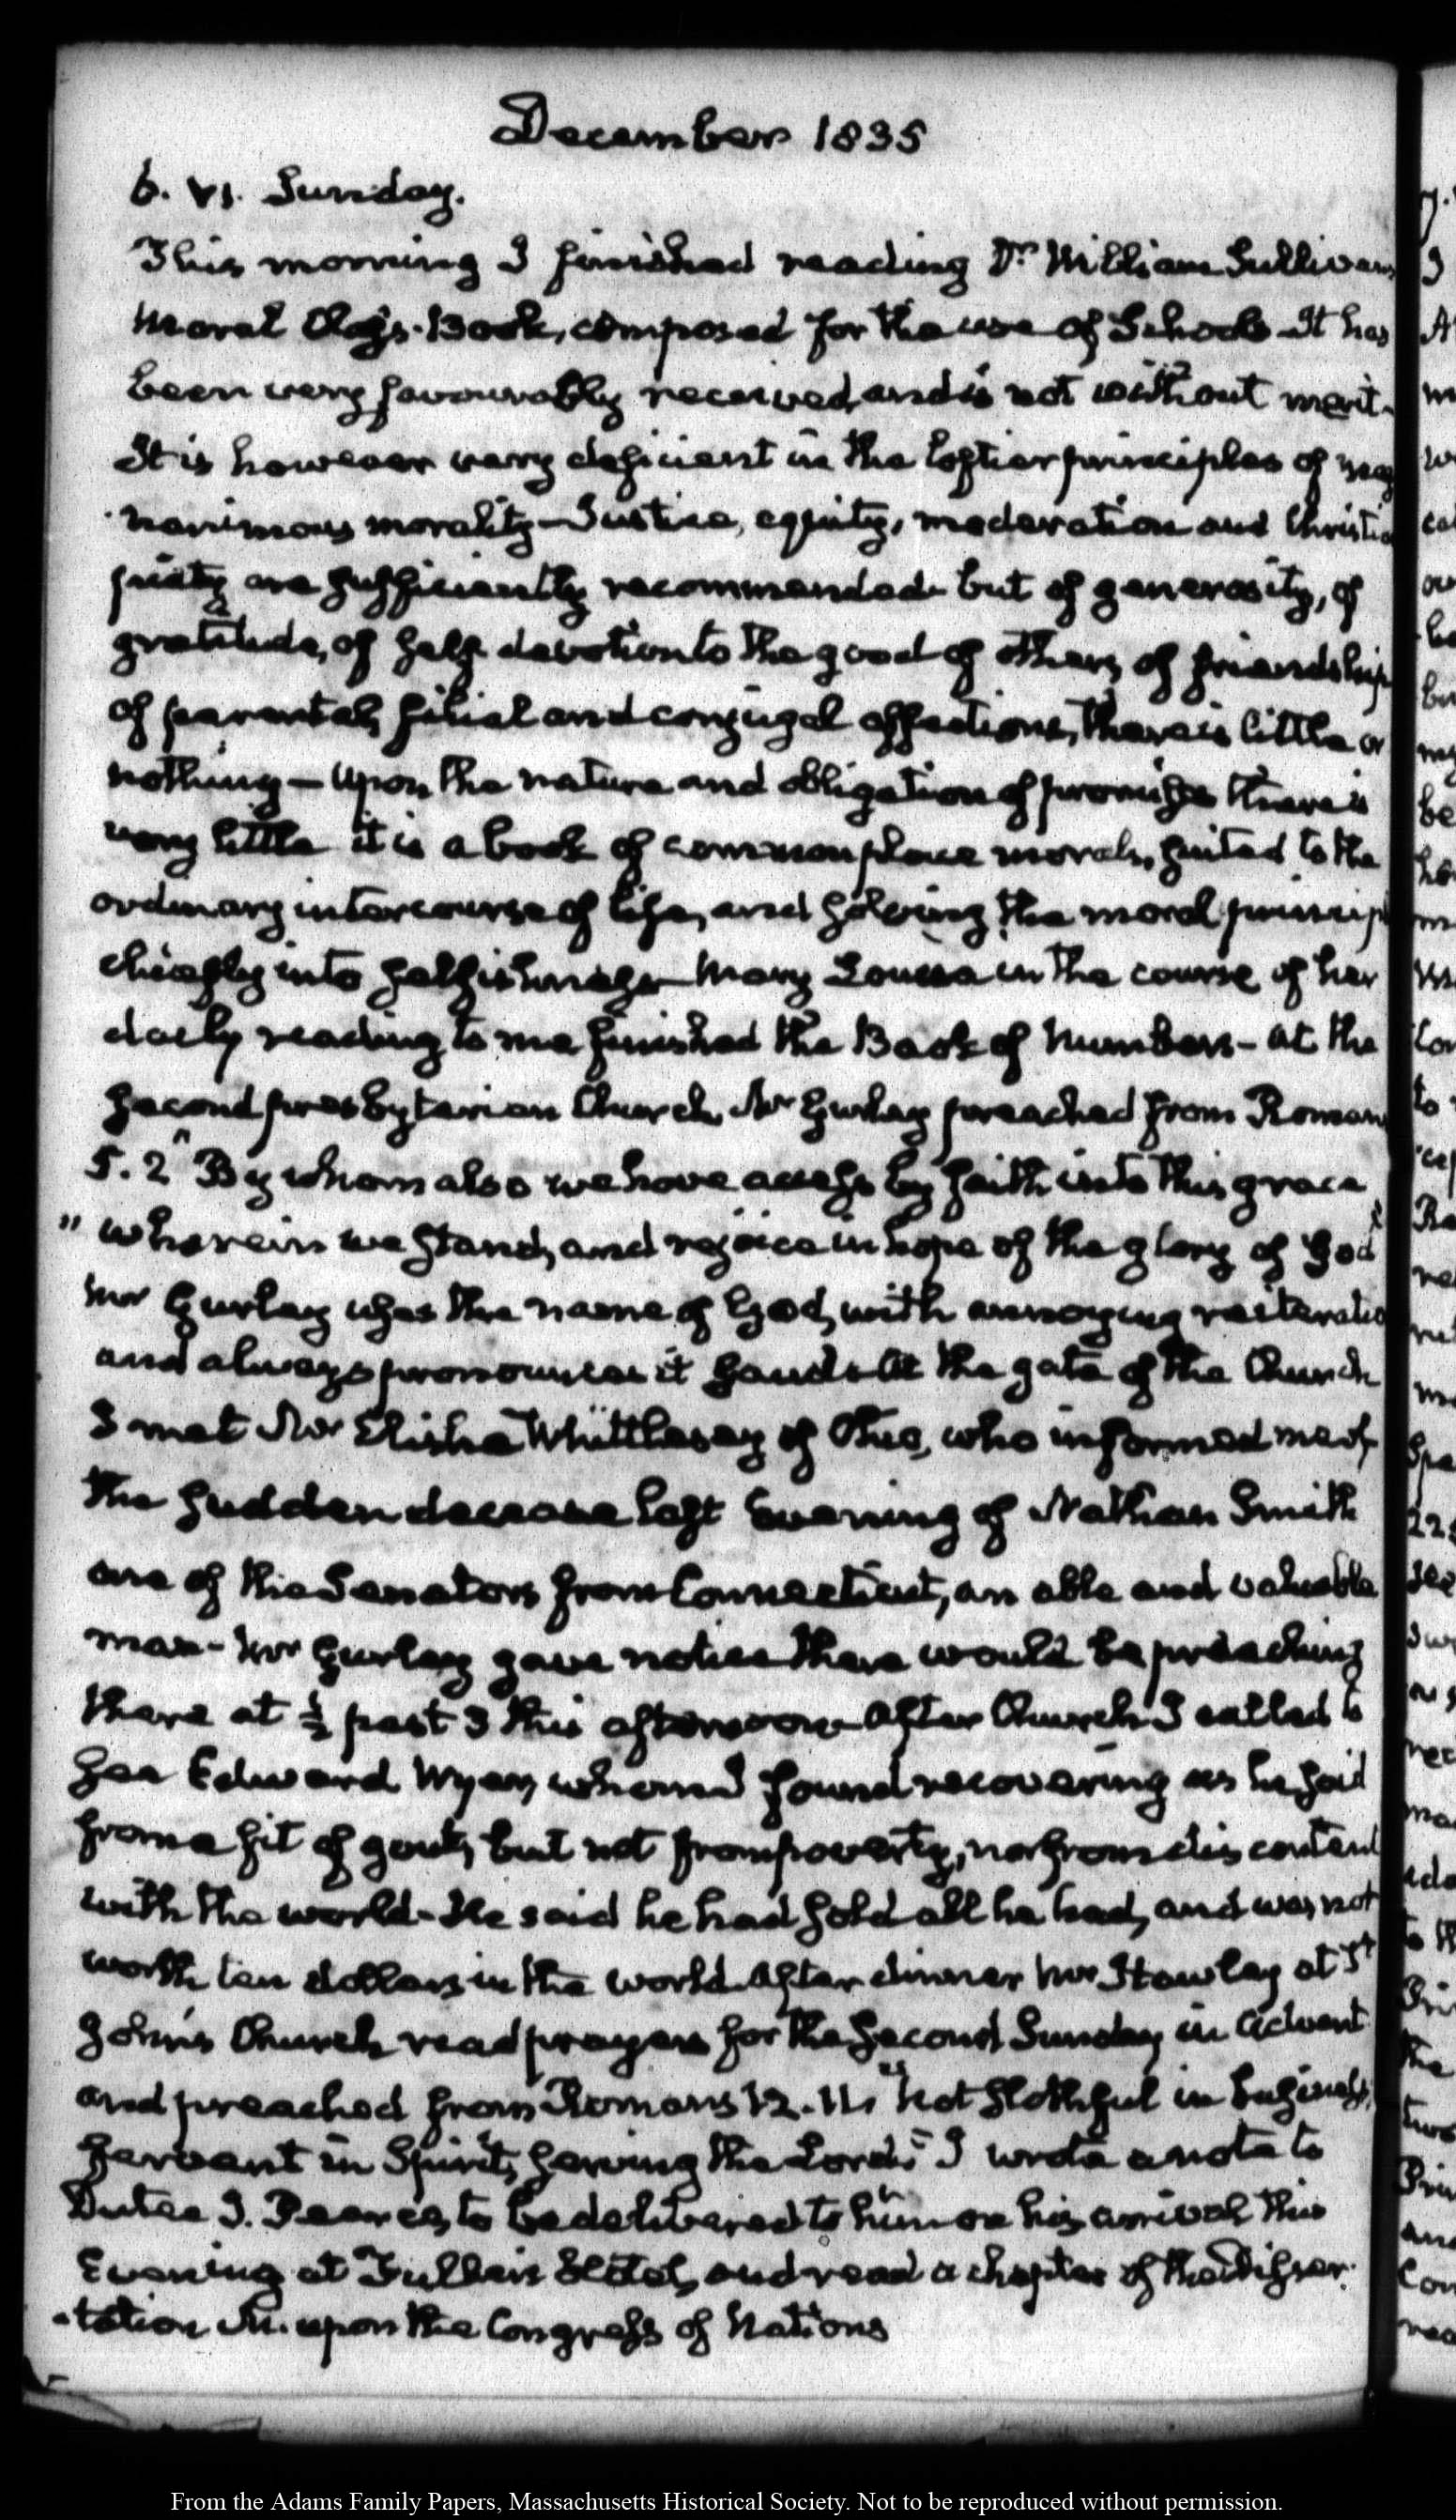 December 1835
6. VI. Sunday.
This morning I finished reading Dr. William Sullivan's
Moral Class-Book, composed for the use of Schools. It has
been very favourably received, and is not without merit.
It is however very deficient in the loftier principles of mag
nanimous morality— Justice, equity, moderation and Christia
piety are sufficiently recommended. but of generosity, of
gratitude, of self devotion to the good of others, of friendship
of parental, filial and conjugal affections, there is little or
nothing— Upon the nature and obligation of promises there is
very little it is a book of common place morals, suited to the
ordinary intercourse of life, and solving the moral princip
chiefly into selfishness— Mary Louisa in the course of her
daily reading to me finished the Book of Numbers— At the
second presbyterian Church, Mr Gurley preached from Romans
5. 2 "By whom also we have access by faith into this grace
" wherein we stand, and rejoice in hope of the glory of God"
Mr Gurley uses the name of God, with annoying reiteratio
and always pronounces it Gaud. At the gate of the Church
I met Mr Elisha Whittlesey of Ohio, who informed me of
the sudden decease last Evening of Nathan Smith
one of the Senators from Connecticut, an able and valuable
man— Mr Gurley gave notice there would be preaching
there at ½ past 3 this afternoon— After Church I called to
see Edward Wyer, whom I found recovering as he said
from a fit of gout, but not from poverty, nor from discontent
with the world— He said he had sold all he had, and was not
worth ten dollars in the world. After dinner Mr Hawley at St
John's Church read prayers for the second Sunday in Advent
and preached from Romans 12. 11. "Not slothful in business,
fervent in Spirit, serving the Lord;" I wrote a note to
Dutee J. Pearce, to be delivered to him on his arrival this
Evening at Fuller's Hotel, and read a chapter of the Disser
-tation M. upon the Congress of Nations
From the Adams Family Papers, Massachusetts Historical Society. Not to be reproduced without permission.